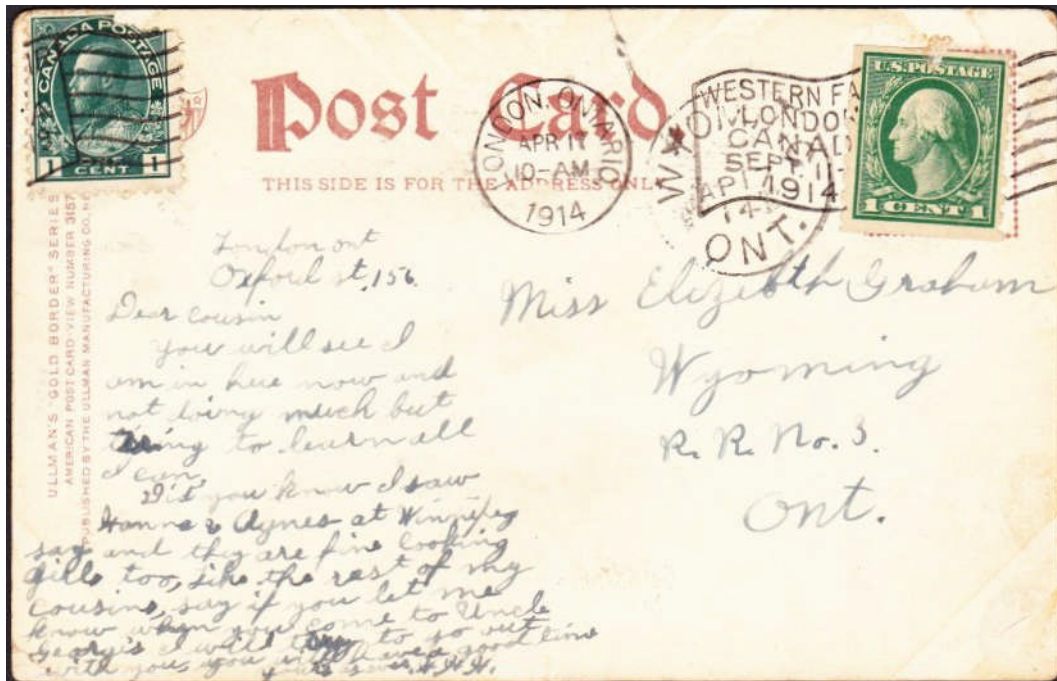 CANADA POSTAGE
1 CENT 1
Post Card
THIS SIDE IS FOR THE ADDRESS ONLY
LONDON, ONTARIO
APR 17
10-AM
1914
WESTERN FA
LONDON
CANAD
SEPT. 11-
1914
WYOM
AP 17
14
ONT.
U.S. POSTAGE
1 CENT 1
ULLMAN'S "GOLD BORDER" SERIES
AMERICAN POST CARD-VIEW NUMBER 3157
PUBLISHED BY THE ULLMAN MANUFACTURING CO. N.Y.
London ont
Oxford st, 156
Dear cousin
you will see I
am in here now and
not doing much but
trring to learn all
I can,
Dit you know I saw
Hanna & Agnes at Winnipeg
say and they are fine looking
girls too, like the rest of my
cousins, say if you let me
know when you come to Uncle
George's I will try to go out
with you, you will have a good time
yours ever.
Miss Elizibth Graham
Wyoming
R. R. No. 3.
Ont.